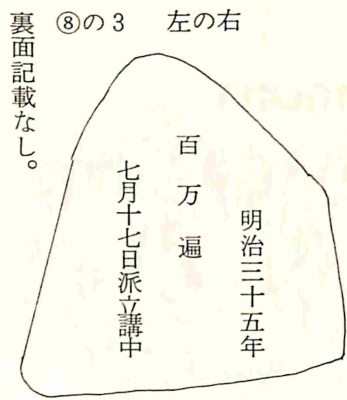 ⑧の3 左の右
明治三十五年
百万遍
七月十七日派立講中
裏面記載なし。